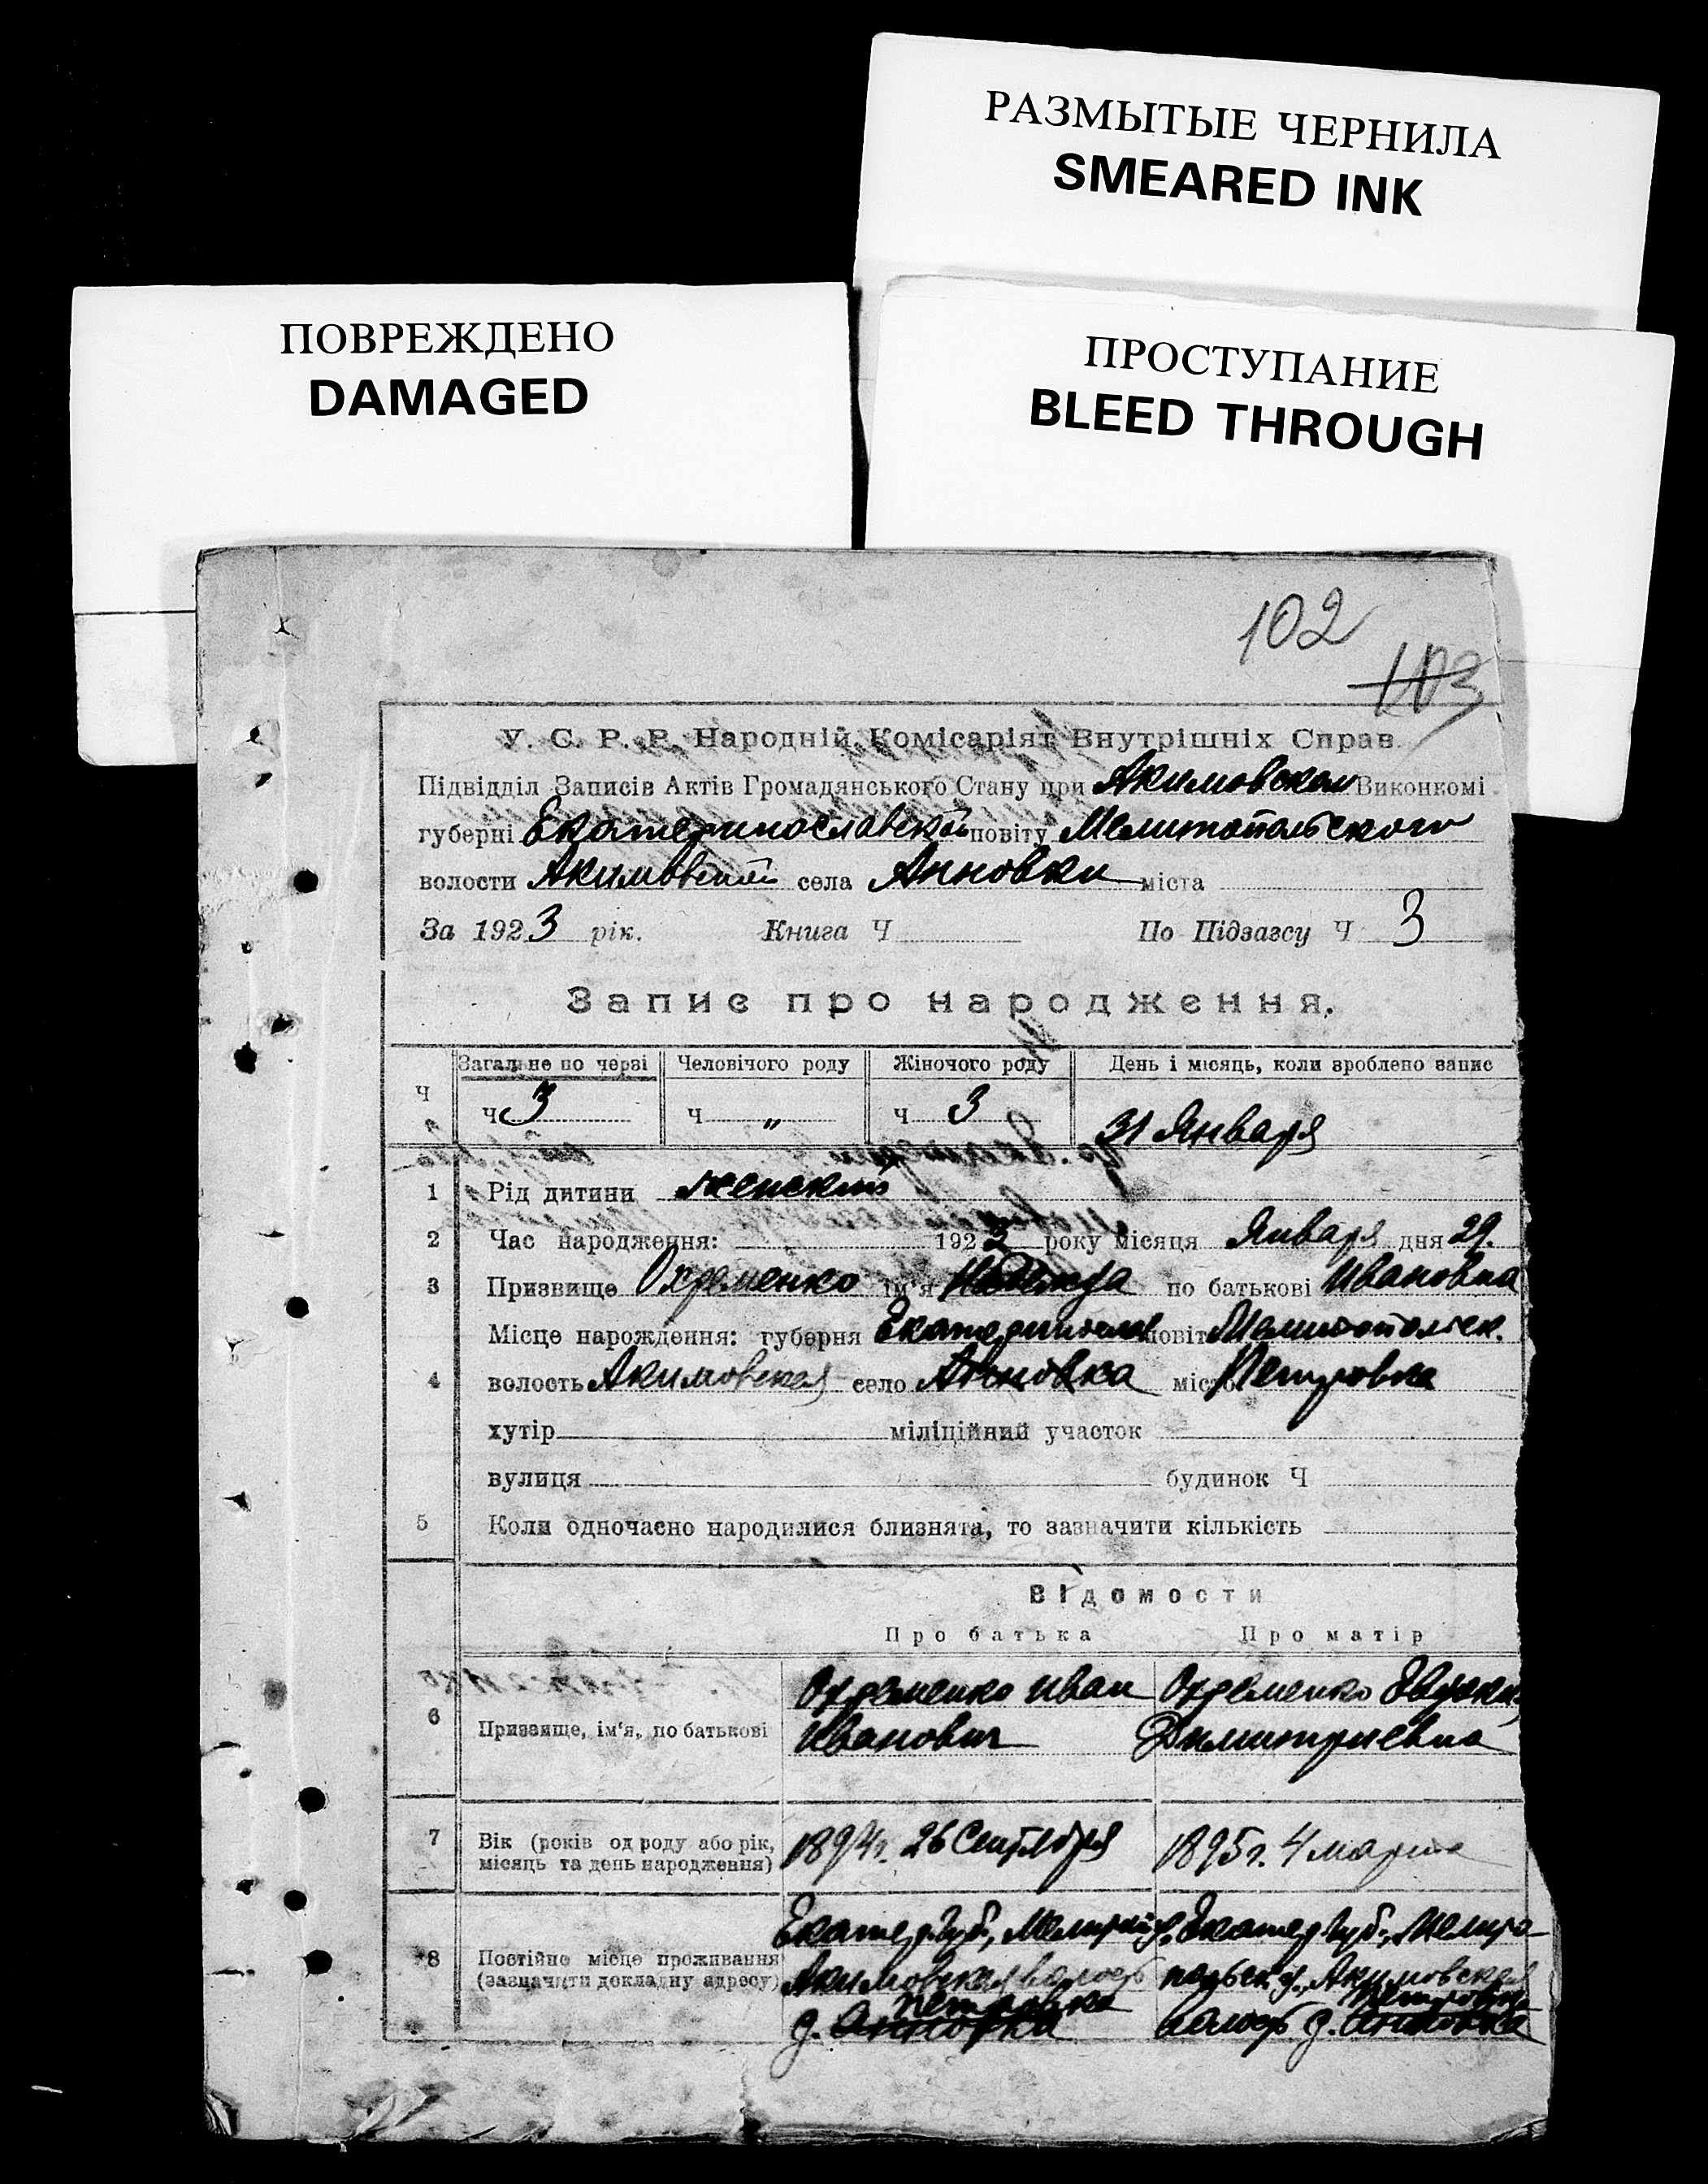 РАЗМЫТЫЕ ЧЕРНИЛА
SMEARED INK
ПОВРЕЖДЕНО
DAMAGED
ПРОСТУПАНИЕ
BLEED THROUGH
102
103
У. С. Р. Р. Народній Комісаріят Внутрішніх Справ.
Підвідділ Записів Актів Громадянського Стану при Акимовском Виконкомі
губерні Екатеринославской повіту Мелитопольского
волости Акимовской села Анновки міста
За 1923 рік. Книга Ч По Підзагсу Ч 3
Запис про народження.
Загальне по черзі Человічого роду Жіночого роду День і місяць, коли зроблено запис
Ч ч 3 ч " ч 3 31 Января
1 Рід дитини женский
2 Час народження: 1923 року місяця Января дня 29.
3 Призвище Охременко ім'я Надежда по батькові Ивановна
Місце народження: губерня Екатеринослав повіт Мелитопольск.
4 волость Акимовская село Анновка місто Петровка
хутір міліційний участок
вулиця будинок Ч
5 Коли одночасно народилися близнята, то зазначити кількість
Відомости
Про батька Про матір
Охременко Иван Охременко
6 Призвище, ім'я, по батькові Иванович Димитриевна
7 Вік (років од роду або рік, місяць та день народження) 1894г. 26 Сентября 1895г. 4 марта
Екатер. Губ., Екатер. Губ., Мелито-
8 Постійне місце проживання Акимовская волость польск. у., Акимовская
(зазначити докладну адресу) Петровка Петровка
д. Анновка волость д. Анновка